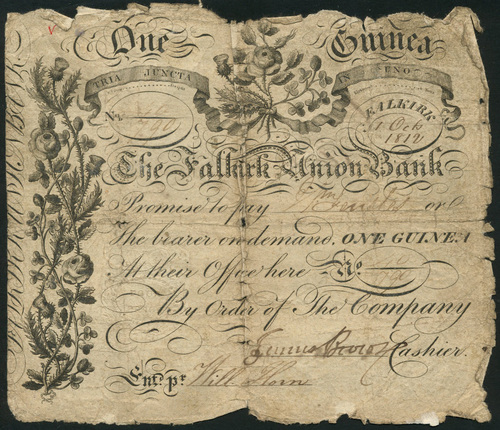 One Guinea
TRIA JUNCTA IN UNO
No
FALKIRK
1 Oct
1812
The Falkirk Union Bank
Promise to pay or
The bearer on demand, ONE GUINEA
At their Office here No
By Order of The Company
Cashier.
Entd. pr. Will Horn